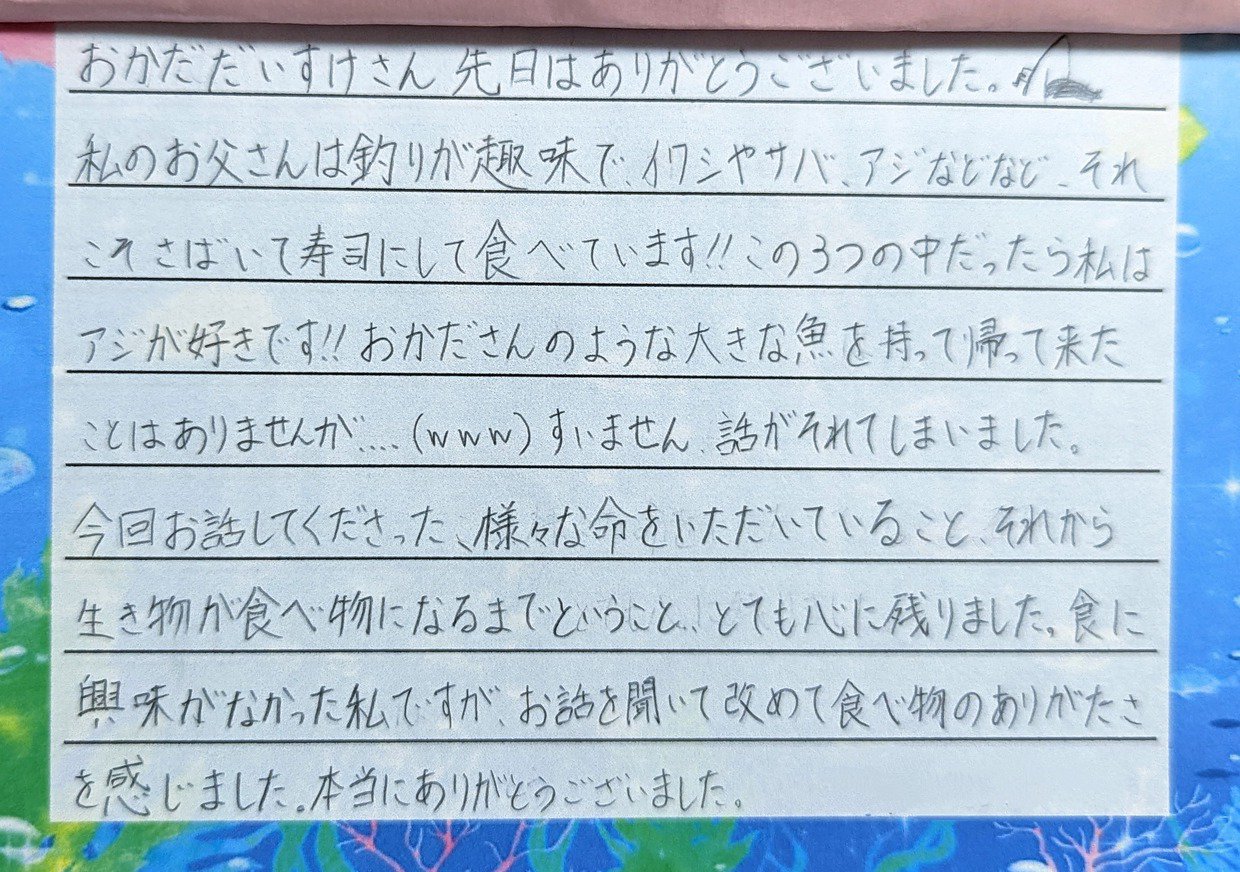 おかだだいすけさん 先日はありがとうございました。
私のお父さんは釣りが趣味で、イワシやサバ、アジなどなど、それ
こそさばいて寿司にして食べています!!この3つの中だったら私は
アジが好きです!!おかださんのような大きな魚を持って帰って来た
ことはありませんが....(www)すいません、話がそれてしまいました。
今回お話してくださった、様々な命をいただいていること、それから
生き物が食べ物になるまでということ、、とても心に残りました。食に
興味がなかった私ですが、お話を聞いて改めて食べ物のありがたさ
を感じました。本当にありがとうございました。